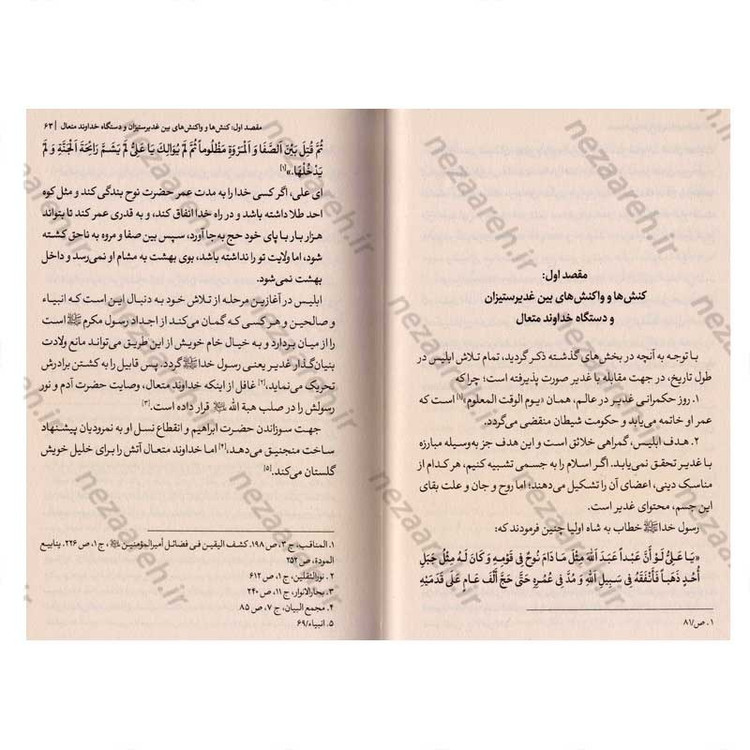 مقصد اول:
کنش‌ها و واکنش‌های بین غدیرستیزان
و دستگاه خداوند متعال
با توجه به آنچه در بخش‌های گذشته ذکر گردید، تمام تلاش ابلیس در
طول تاریخ، در جهت مقابله با غدیر صورت پذیرفته است؛ چرا که
۱. روز حکمرانی غدیر در عالم، همان «یوم الوقت المعلوم»[۱] است که
عمر او خاتمه می‌یابد و حکومت شیطان منقضی می‌گردد.
۲. هدف ابلیس، گمراهی خلائق است و این هدف جز به‌وسیله مبارزه
با غدیر تحقق نمی‌یابد. اگر اسلام را به جسمی تشبیه کنیم، هر کدام از
مناسک دینی، اعضای آن را تشکیل می‌دهند؛ اما روح و جان و علت بقای
این جسم، محتوای غدیر است.
رسول خدا ﷺ خطاب به شاه اولیا چنین فرمودند که:
«یَا عَلِیُّ لَوْ أَنَّ عَبْداً عَبَدَ اللَّهَ مِثْلَ مَا دَامَ نُوحٌ فِی قَوْمِهِ وَ کَانَ لَهُ مِثْلُ جَبَلِ
أُحُدٍ ذَهَباً فَأَنْفَقَهُ فِی سَبِیلِ اللَّهِ وَ مُدَّ فِی عُمُرِهِ حَتَّى حَجَّ أَلْفَ عَامٍ عَلَى قَدَمَیْهِ
۱. ص/۸۱
مقصد اول: کنش‌ها و واکنش‌های بین غدیرستیزان و دستگاه خداوند متعال | ۶۳
ثُمَّ قُتِلَ بَیْنَ الصَّفَا وَ الْمَرْوَةِ مَظْلُوماً ثُمَّ لَمْ یُوَالِکَ یَا عَلِیُّ لَمْ یَشَمَّ رَائِحَةَ الْجَنَّةِ وَ لَمْ
یَدْخُلْهَا.»[۱]
ای علی، اگر کسی خدا را به مدت عمر حضرت نوح بندگی کند و مثل کوه
احد طلا داشته باشد و در راه خدا انفاق کند، و به قدری عمر کند تا بتواند
هزار بار با پای خود حج به‌جا آورد، سپس بین صفا و مروه به ناحق کشته
شود، اما ولایت تو را نداشته باشد، بوی بهشت به مشام او نمی‌رسد و داخل
بهشت نمی‌شود.
ابلیس در آغازین مرحله از تلاش خود به دنبال این است که انبیاء
و صالحین و هر کسی که گمان می‌کند از اجداد رسول مکرم ﷺ است
را از میان بردارد و به خیال خام خویش از این طریق می‌تواند مانع ولادت
بنیان‌گذار غدیر یعنی رسول خدا ﷺ گردد. پس قابیل را به کشتن برادرش
تحریک می‌نماید،[۲] غافل از اینکه خداوند متعال، وصایت حضرت آدم و نور
رسولش را در صلب هبة الله قرار داده است.[۳]
جهت سوزاندن حضرت ابراهیم و انقطاع نسل او به نمرودیان پیشنهاد
ساخت منجنیق می‌دهد،[۴] اما خداوند متعال آتش را برای خلیل خویش
گلستان می‌کند.[۵]
۱. المناقب، ج ۳، ص ۱۹۸. کشف الیقین فی فضائل أمیرالمؤمنین، ج ۱، ص ۲۲۶. ینابیع
المودة، ص ۲۵۲
۲. نورالثقلین، ج ۱، ص ۶۱۲
۳. بحارالانوار، ج ۱۱، ص ۲۴۰
۴. مجمع البیان، ج ۷، ص ۸۵
۵. انبیاء/۶۹
nezaareh.ir